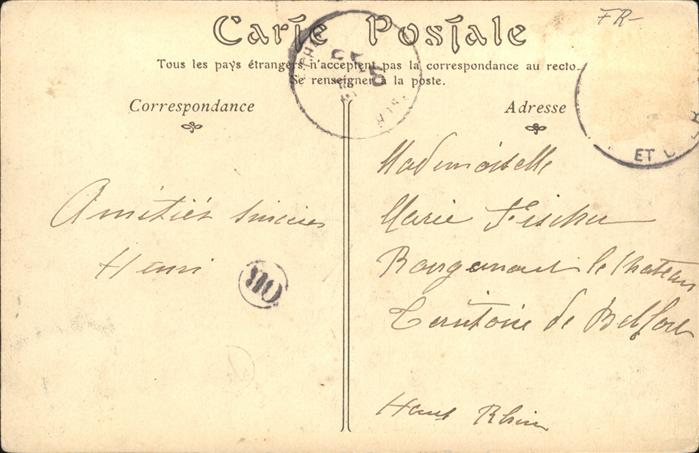 FR-
Carte Postale
Tous les pays étrangers n'acceptent pas la correspondance au recto.
Se renseigner à la poste.
Correspondance
Adresse
ET
Amitiés sincères
Henri
OR
Mademoiselle
Marie Fischer
Rougemont le Chateau
Territoire de Belfort
Haut Rhin